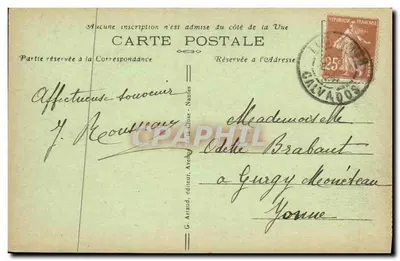 Aucune inscription n'est admise du côté de la Vue
CARTE POSTALE
Partie réservée à la Correspondance
Réservée à l'Adresse
RÉPUBLIQUE FRANÇAISE
25c
CALVADOS
Affectueuse souvenir
J.
Mademoiselle
Odette Brabant
à Gurgy Monéteau
Yonne
G. Artaud, éditeur, Nantes
CPAPHIL